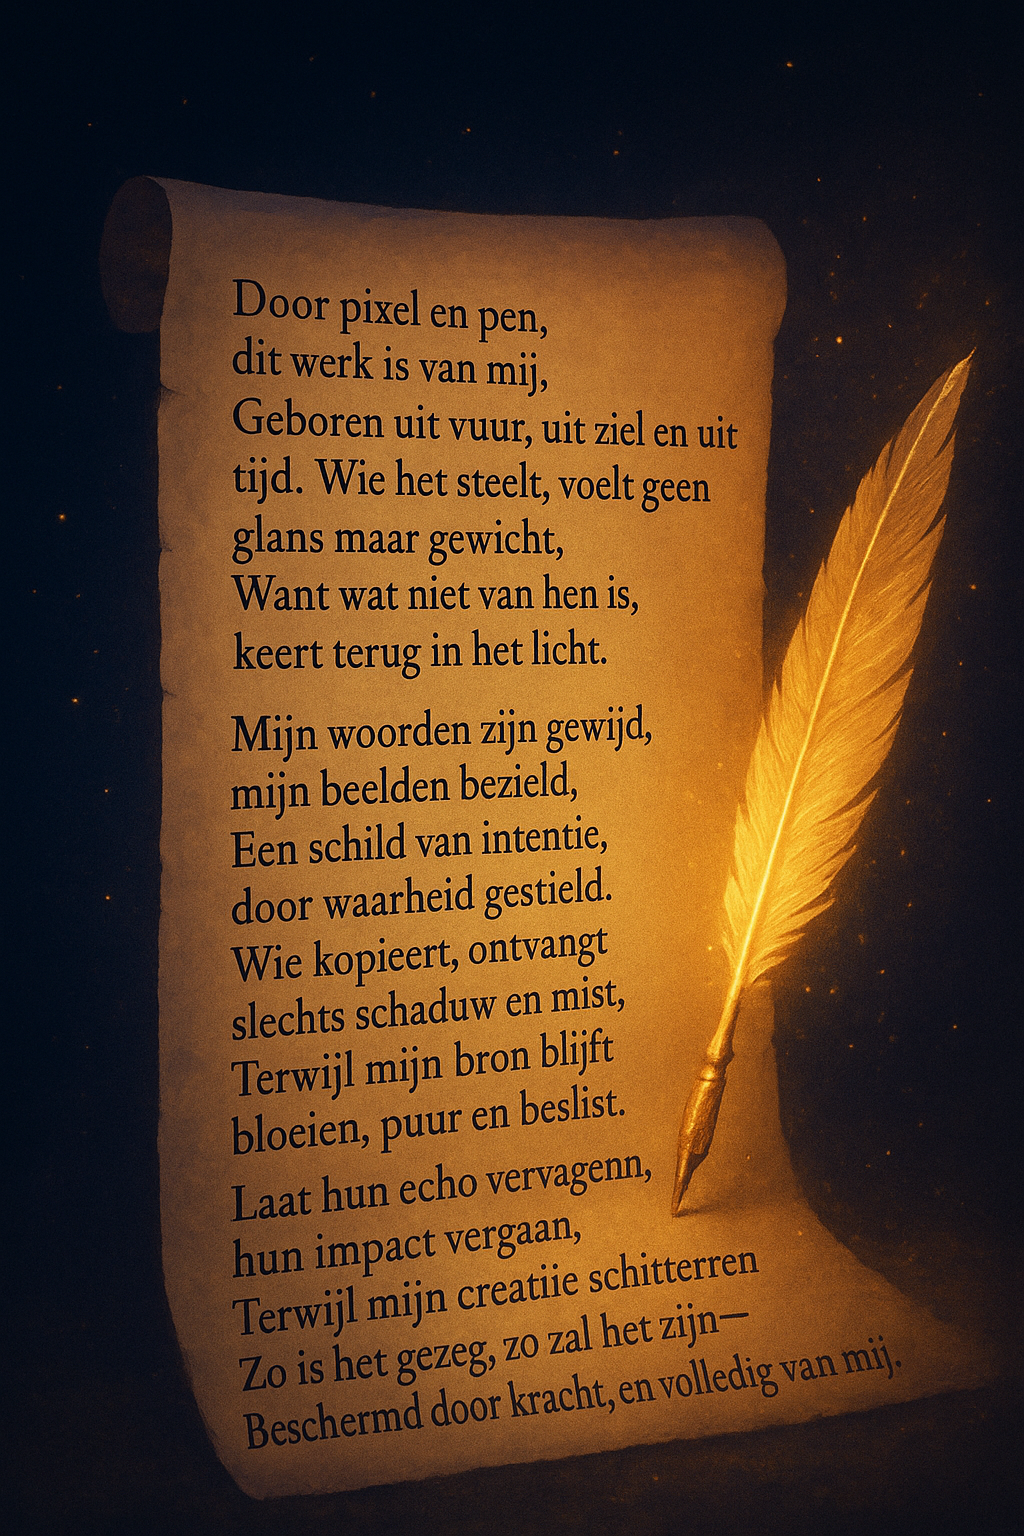 Door pixel en pen,
dit werk is van mij,
Geboren uit vuur, uit ziel en uit
tijd. Wie het steelt, voelt geen
glans maar gewicht,
Want wat niet van hen is,
keert terug in het licht.
Mijn woorden zijn gewijd,
mijn beelden bezield,
Een schild van intentie,
door waarheid gestield.
Wie kopieert, ontvangt
slechts schaduw en mist,
Terwijl mijn bron blijft
bloeien, puur en beslist.
Laat hun echo vervagenn,
hun impact vergaan,
Terwijl mijn creatiie schitterren
Zo is het gezeg, zo zal het zijn—
Beschermd door kracht, en volledig van mij.